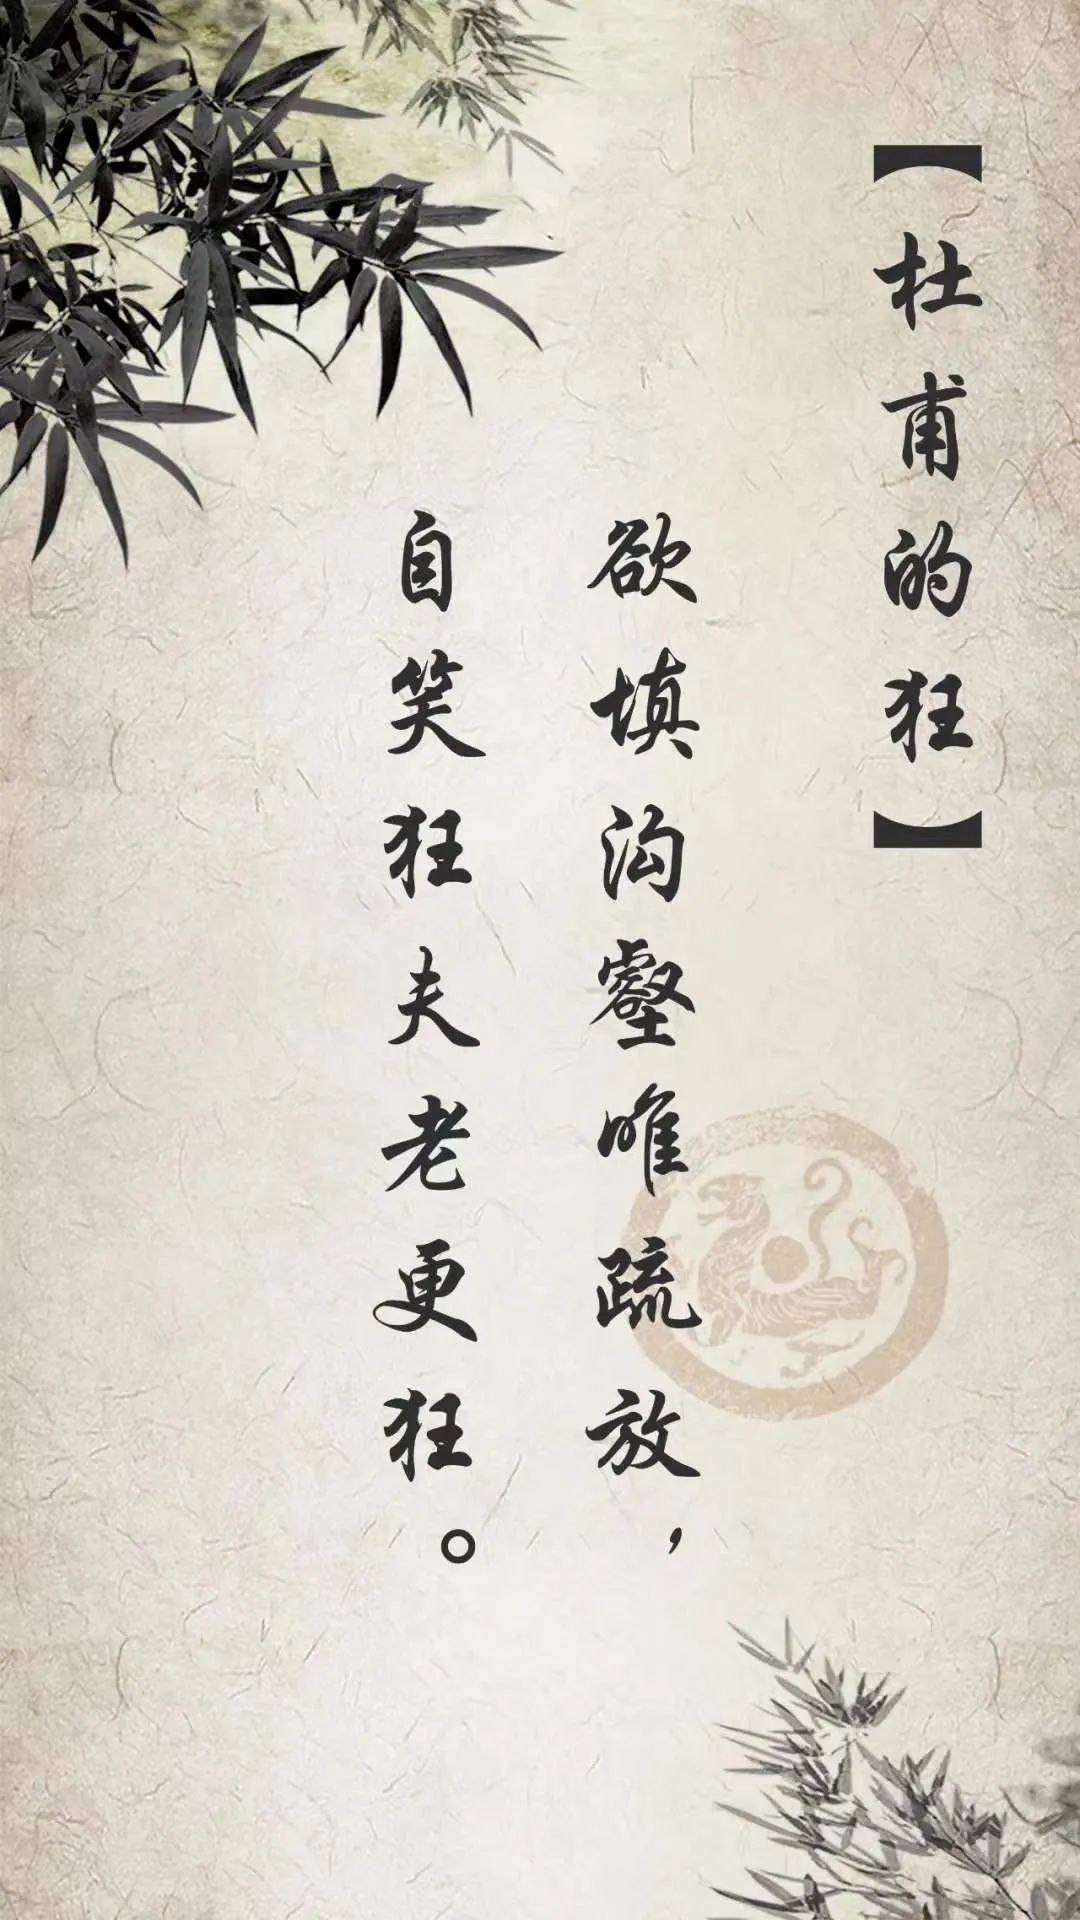 【杜甫的狂】
欲填沟壑唯疏放，
自笑狂夫老更狂。